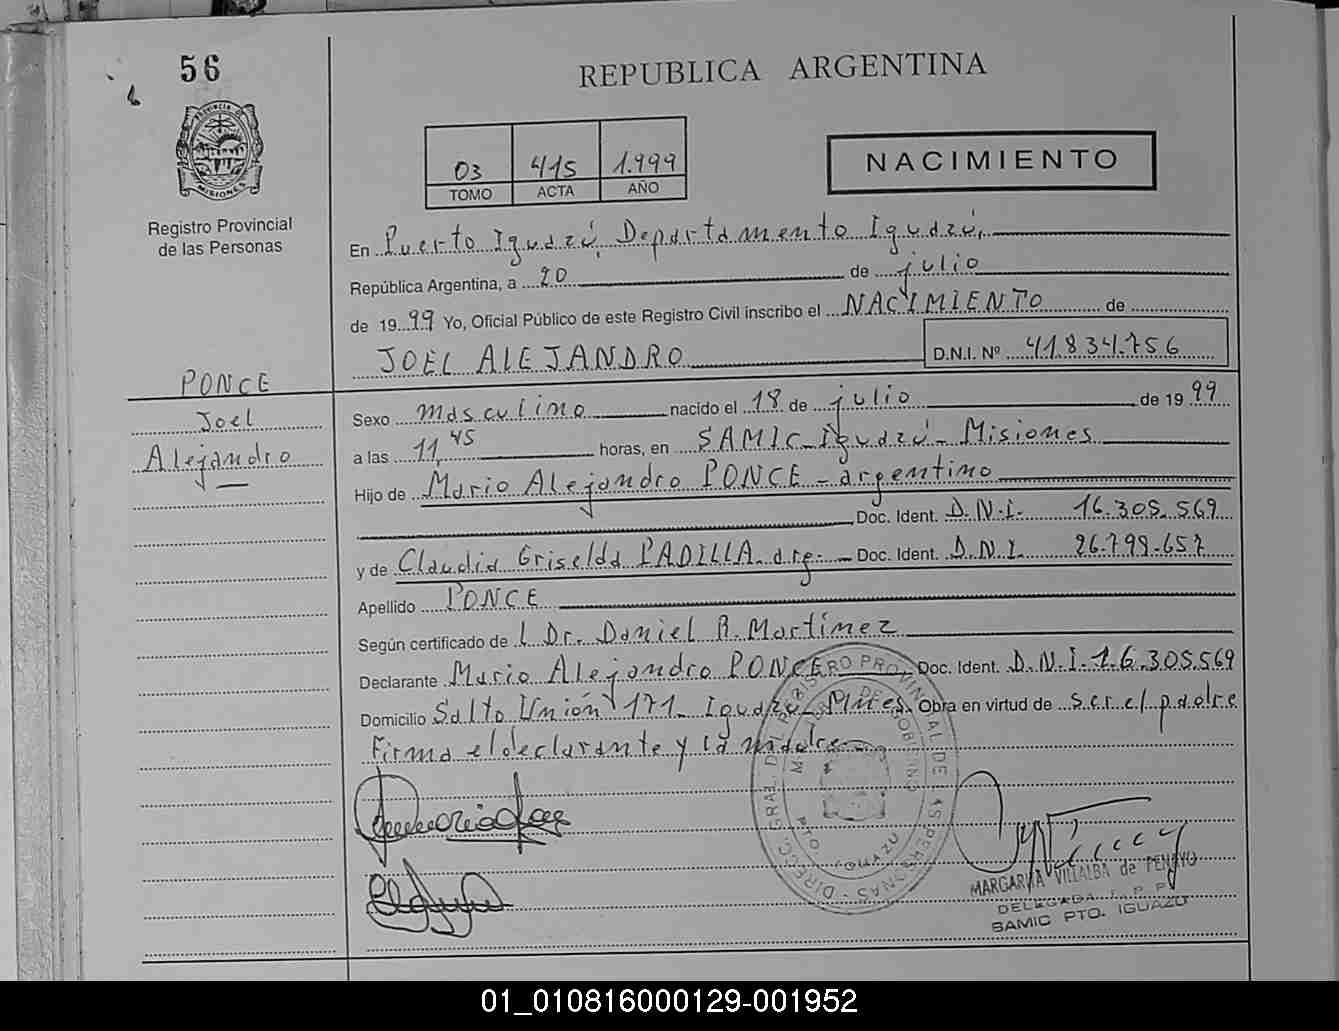 56
REPUBLICA ARGENTINA
PROVINCIA DE
MISIONES
Registro Provincial
de las Personas
03 415 1.999
TOMO ACTA AÑO
NACIMIENTO
En Puerto Iguazú, Departamento Iguazú,
República Argentina, a 20 de julio
de 1999 Yo, Oficial Público de este Registro Civil inscribo el NACIMIENTO de
JOEL ALEJANDRO D.N.I. Nº 41.834.756
PONCE
Joel
Alejandro
Sexo masculino nacido el 18 de julio de 1999
a las 11,45 horas, en SAMIC - Iguazú - Misiones
Hijo de Mario Alejandro PONCE - argentino
Doc. Ident. D.N.I. 16.305.569
y de Claudia Griselda PADILLA - arg. - Doc. Ident. D.N.I. 26.799.657
Apellido PONCE
Según certificado de l Dr. Daniel R. Martínez
Declarante Mario Alejandro PONCE Doc. Ident. D.N.I. 16.305.569
Domicilio Salto Unión 171 - Iguazú - Mnes. Obra en virtud de ser el padre
Firma el declarante y la madre
DIRECC. GRAL. DEL REGISTRO PROVINCIAL DE LAS PERSONAS
PTO. IGUAZU
MARGARITA VILLALBA de PENAYO
DELEGADA R. P. P.
SAMIC PTO. IGUAZU
01_010816000129-001952